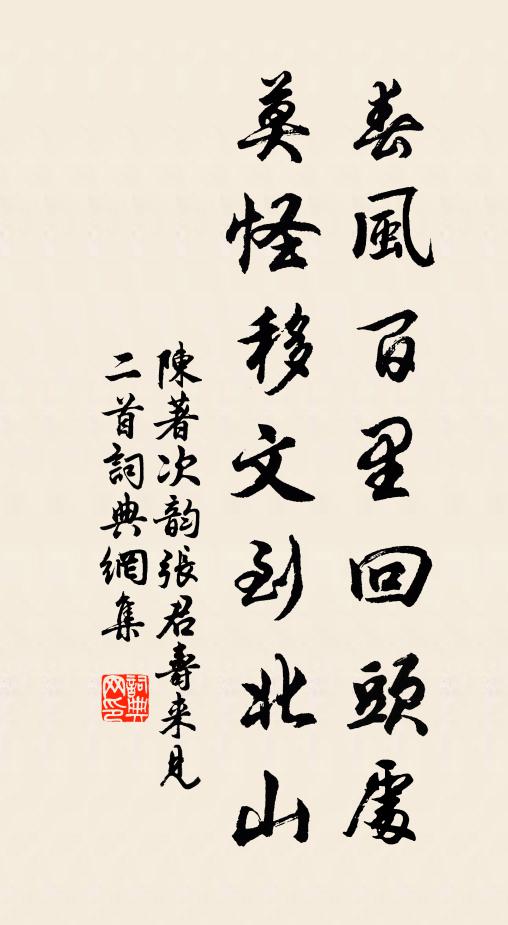 春風百里回頭處
莫怪移文到北山
陳著次韵張君壽来見
二首詞典網集
詞典
网印